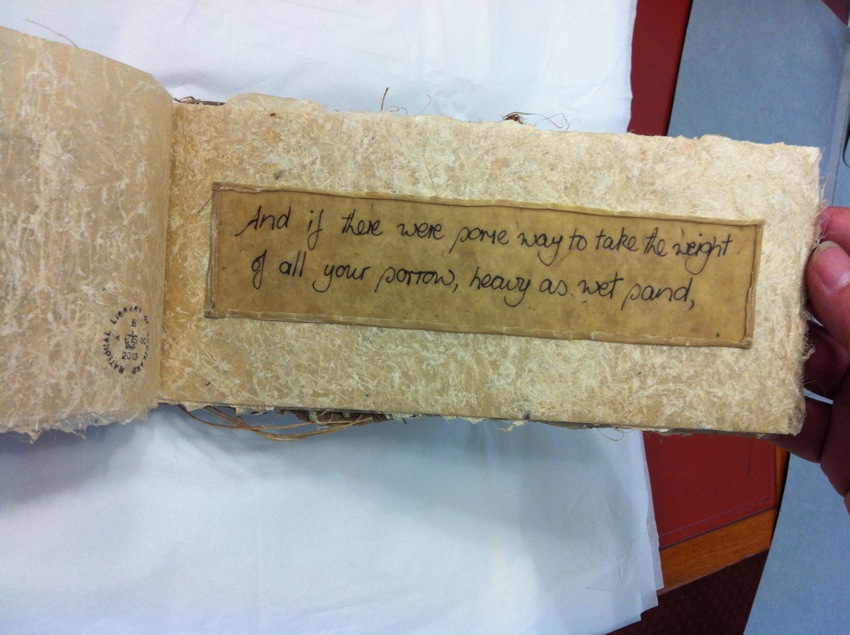 And if there were some way to take the weight
of all your sorrow, heavy as wet sand,
NATIONAL LIBRARY OF SCOTLAND
2013